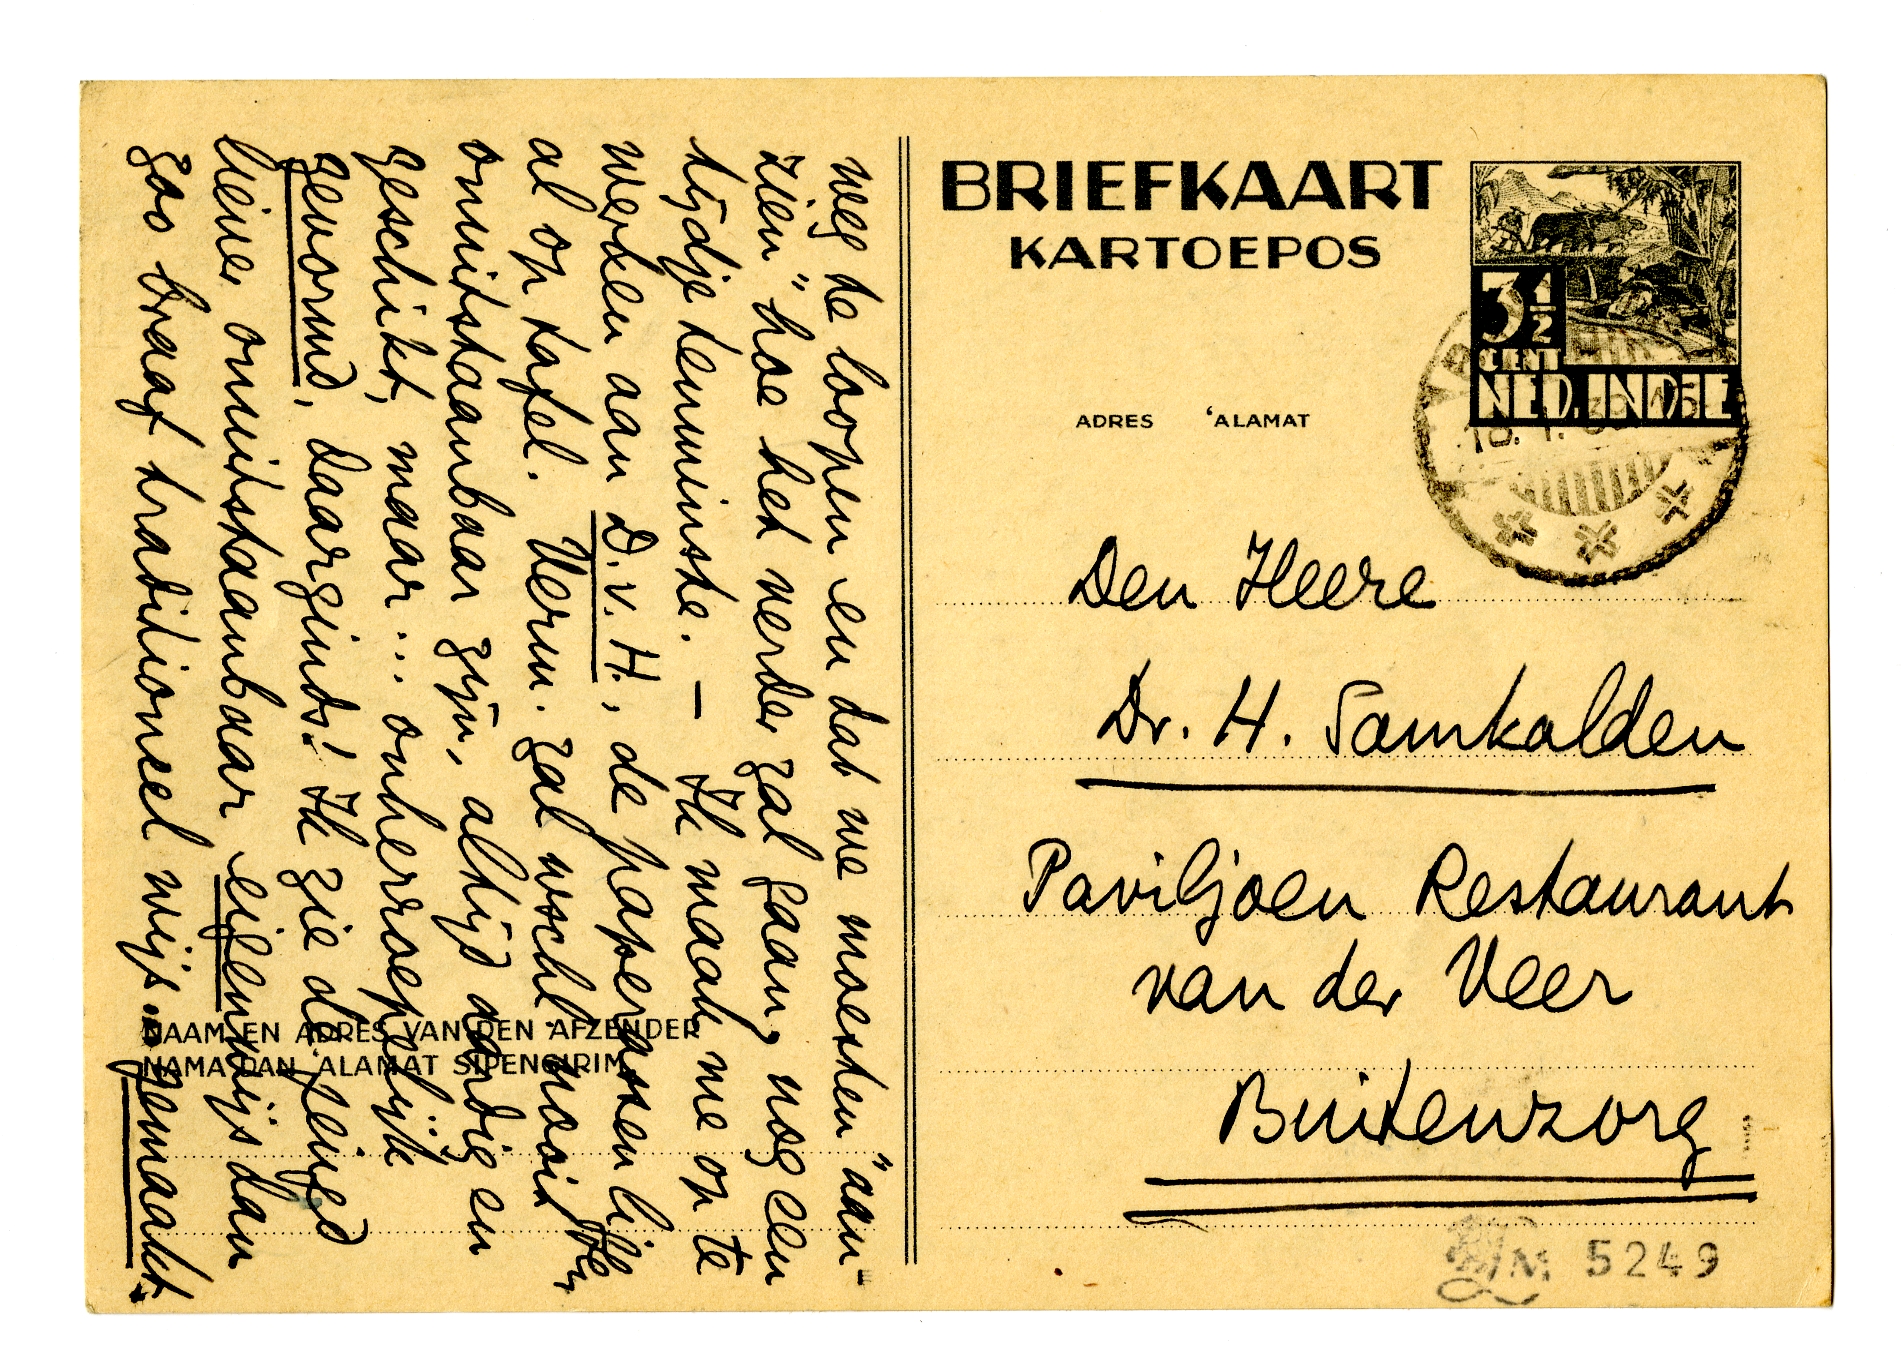 weg te loopen en dat we moesten "aan-
zien" hoe het verder zal gaan, nog een
tijdje tenminste. — Ik maak me op te
werken aan D.v.H., de paperassen lijk
al op tafel. Verm. zal wschl. nooit
onuitstaanbaar zijn, altijd aardig en
geschikt, maar... onherroepelijk
gevormd, daarginds! Ik zie de jeugd
liever onuitstaanbaar eigenwijs dan
zoo braaf traditioneel wijs gemaakt.
NAAM EN ADRES VAN DEN AFZENDER
NAMA DAN 'ALAMAT SIPENGIRIM
BRIEFKAART
KARTOEPOS
3½
CENT
NED. INDIE
ADRES 'ALAMAT
Den Heere
Dr. H. Samkalden
Paviljoen Restaurant
van der Veer
Buitenzorg
N. 5249